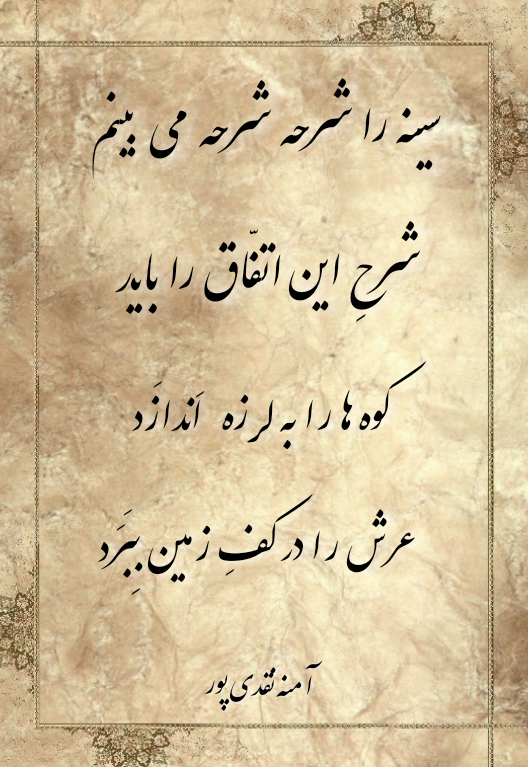 سینه را شرحه شرحه می بینم
شرحِ این اتفّاق را باید
کوه ها را به لرزه اَندازَد
عرش را در کفِ زمین بِبَرَد
آمنه نقدی پور